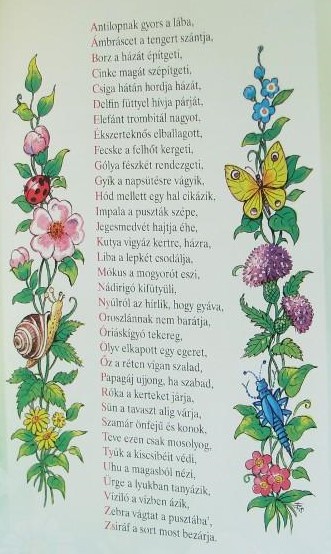 Antilopnak gyors a lába,
Ámbráscet a tengert szántja,
Borz a házát építgeti,
Cinke magát szépítgeti,
Csiga hátán hordja házát,
Delfin füttyel hívja párját,
Elefánt trombitál nagyot,
Ékszerteknős elballagott,
Fecske a felhőt kergeti,
Gólya fészkét rendezgeti,
Gyík a napsütésre vágyik,
Hód mellett egy hal cikázik,
Impala a puszták szépe,
Jegesmedvét hajtja éhe,
Kutya vigyáz kertre, házra,
Liba a lepkét csodálja,
Mókus a mogyorót eszi,
Nádirigó kifütyüli,
Nyúlról az hírlik, hogy gyáva,
Oroszlánnak nem barátja,
Óriáskígyó tekereg,
Ölyv elkapott egy egeret,
Őz a réten vígan szalad,
Papagáj ujjong, ha szabad,
Róka a kerteket járja,
Sün a tavaszt alig várja,
Szamár önfejű és konok,
Teve ezen csak mosolyog,
Tyúk a kiscsibéit védi,
Uhu a magasból nézi,
Ürge a lyukban tanyázik,
Víziló a vízben ázik,
Zebra vágtat a pusztába',
Zsiráf a sort most bezárja.